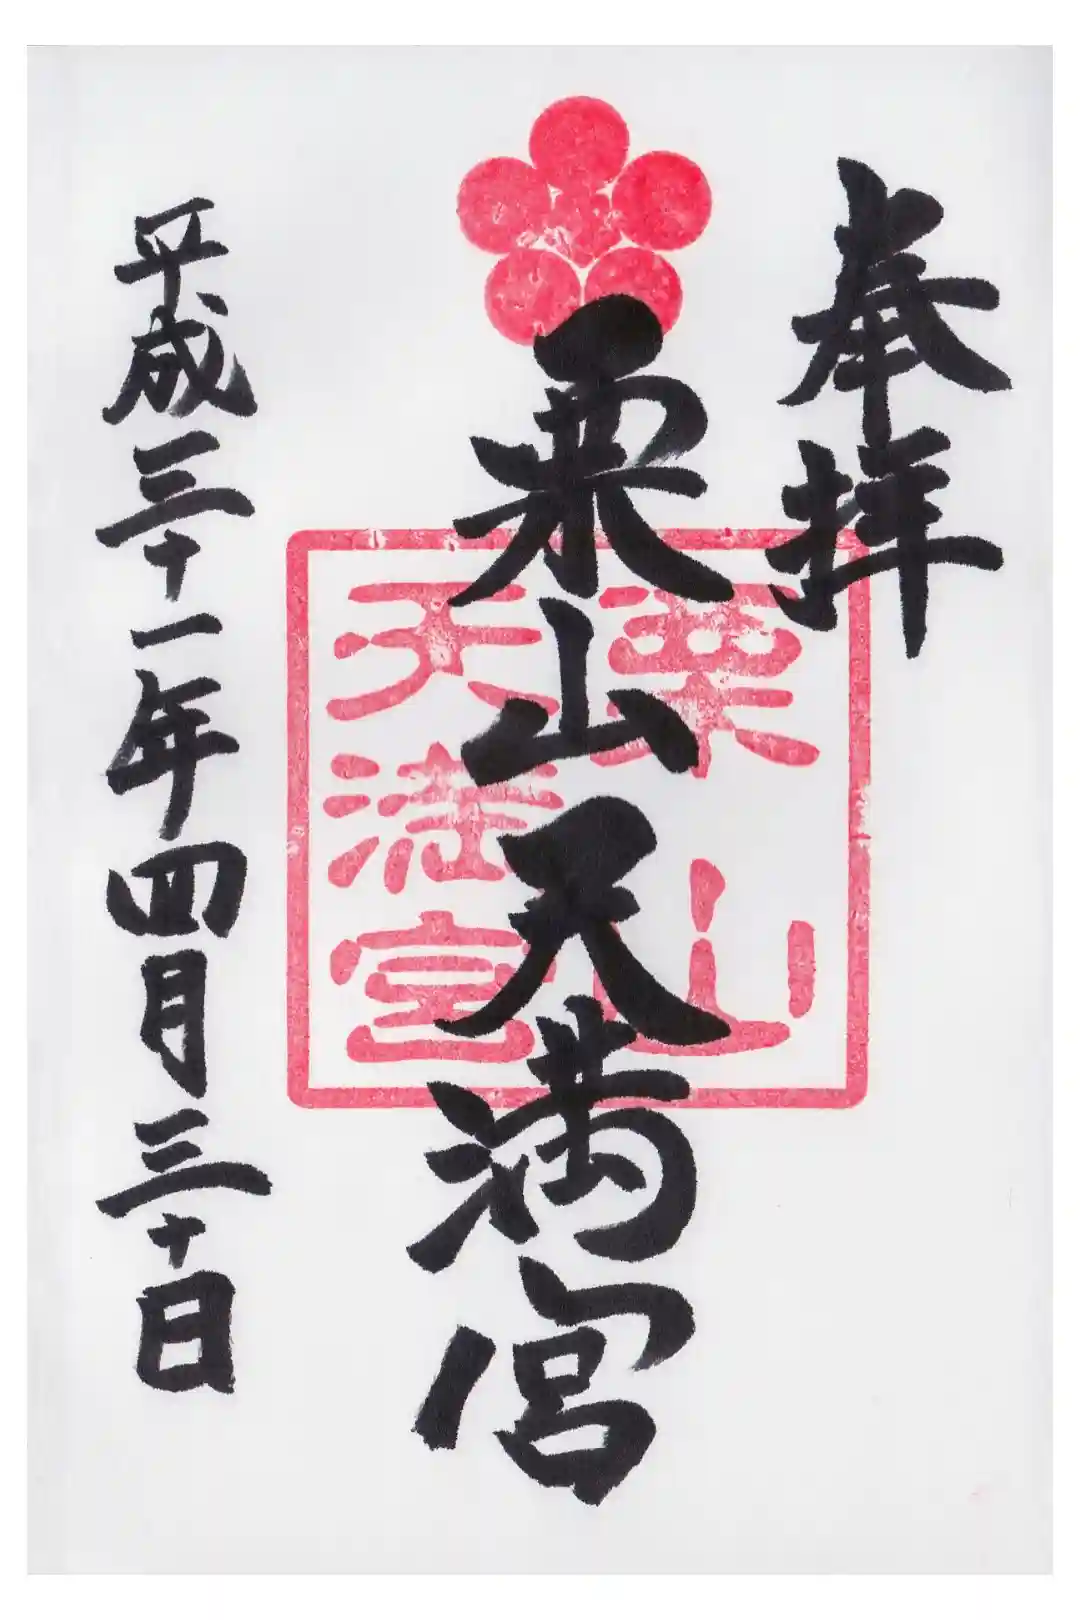 奉拝
栗山天満宮
栗山
天満宮
平成三十一年四月三十日